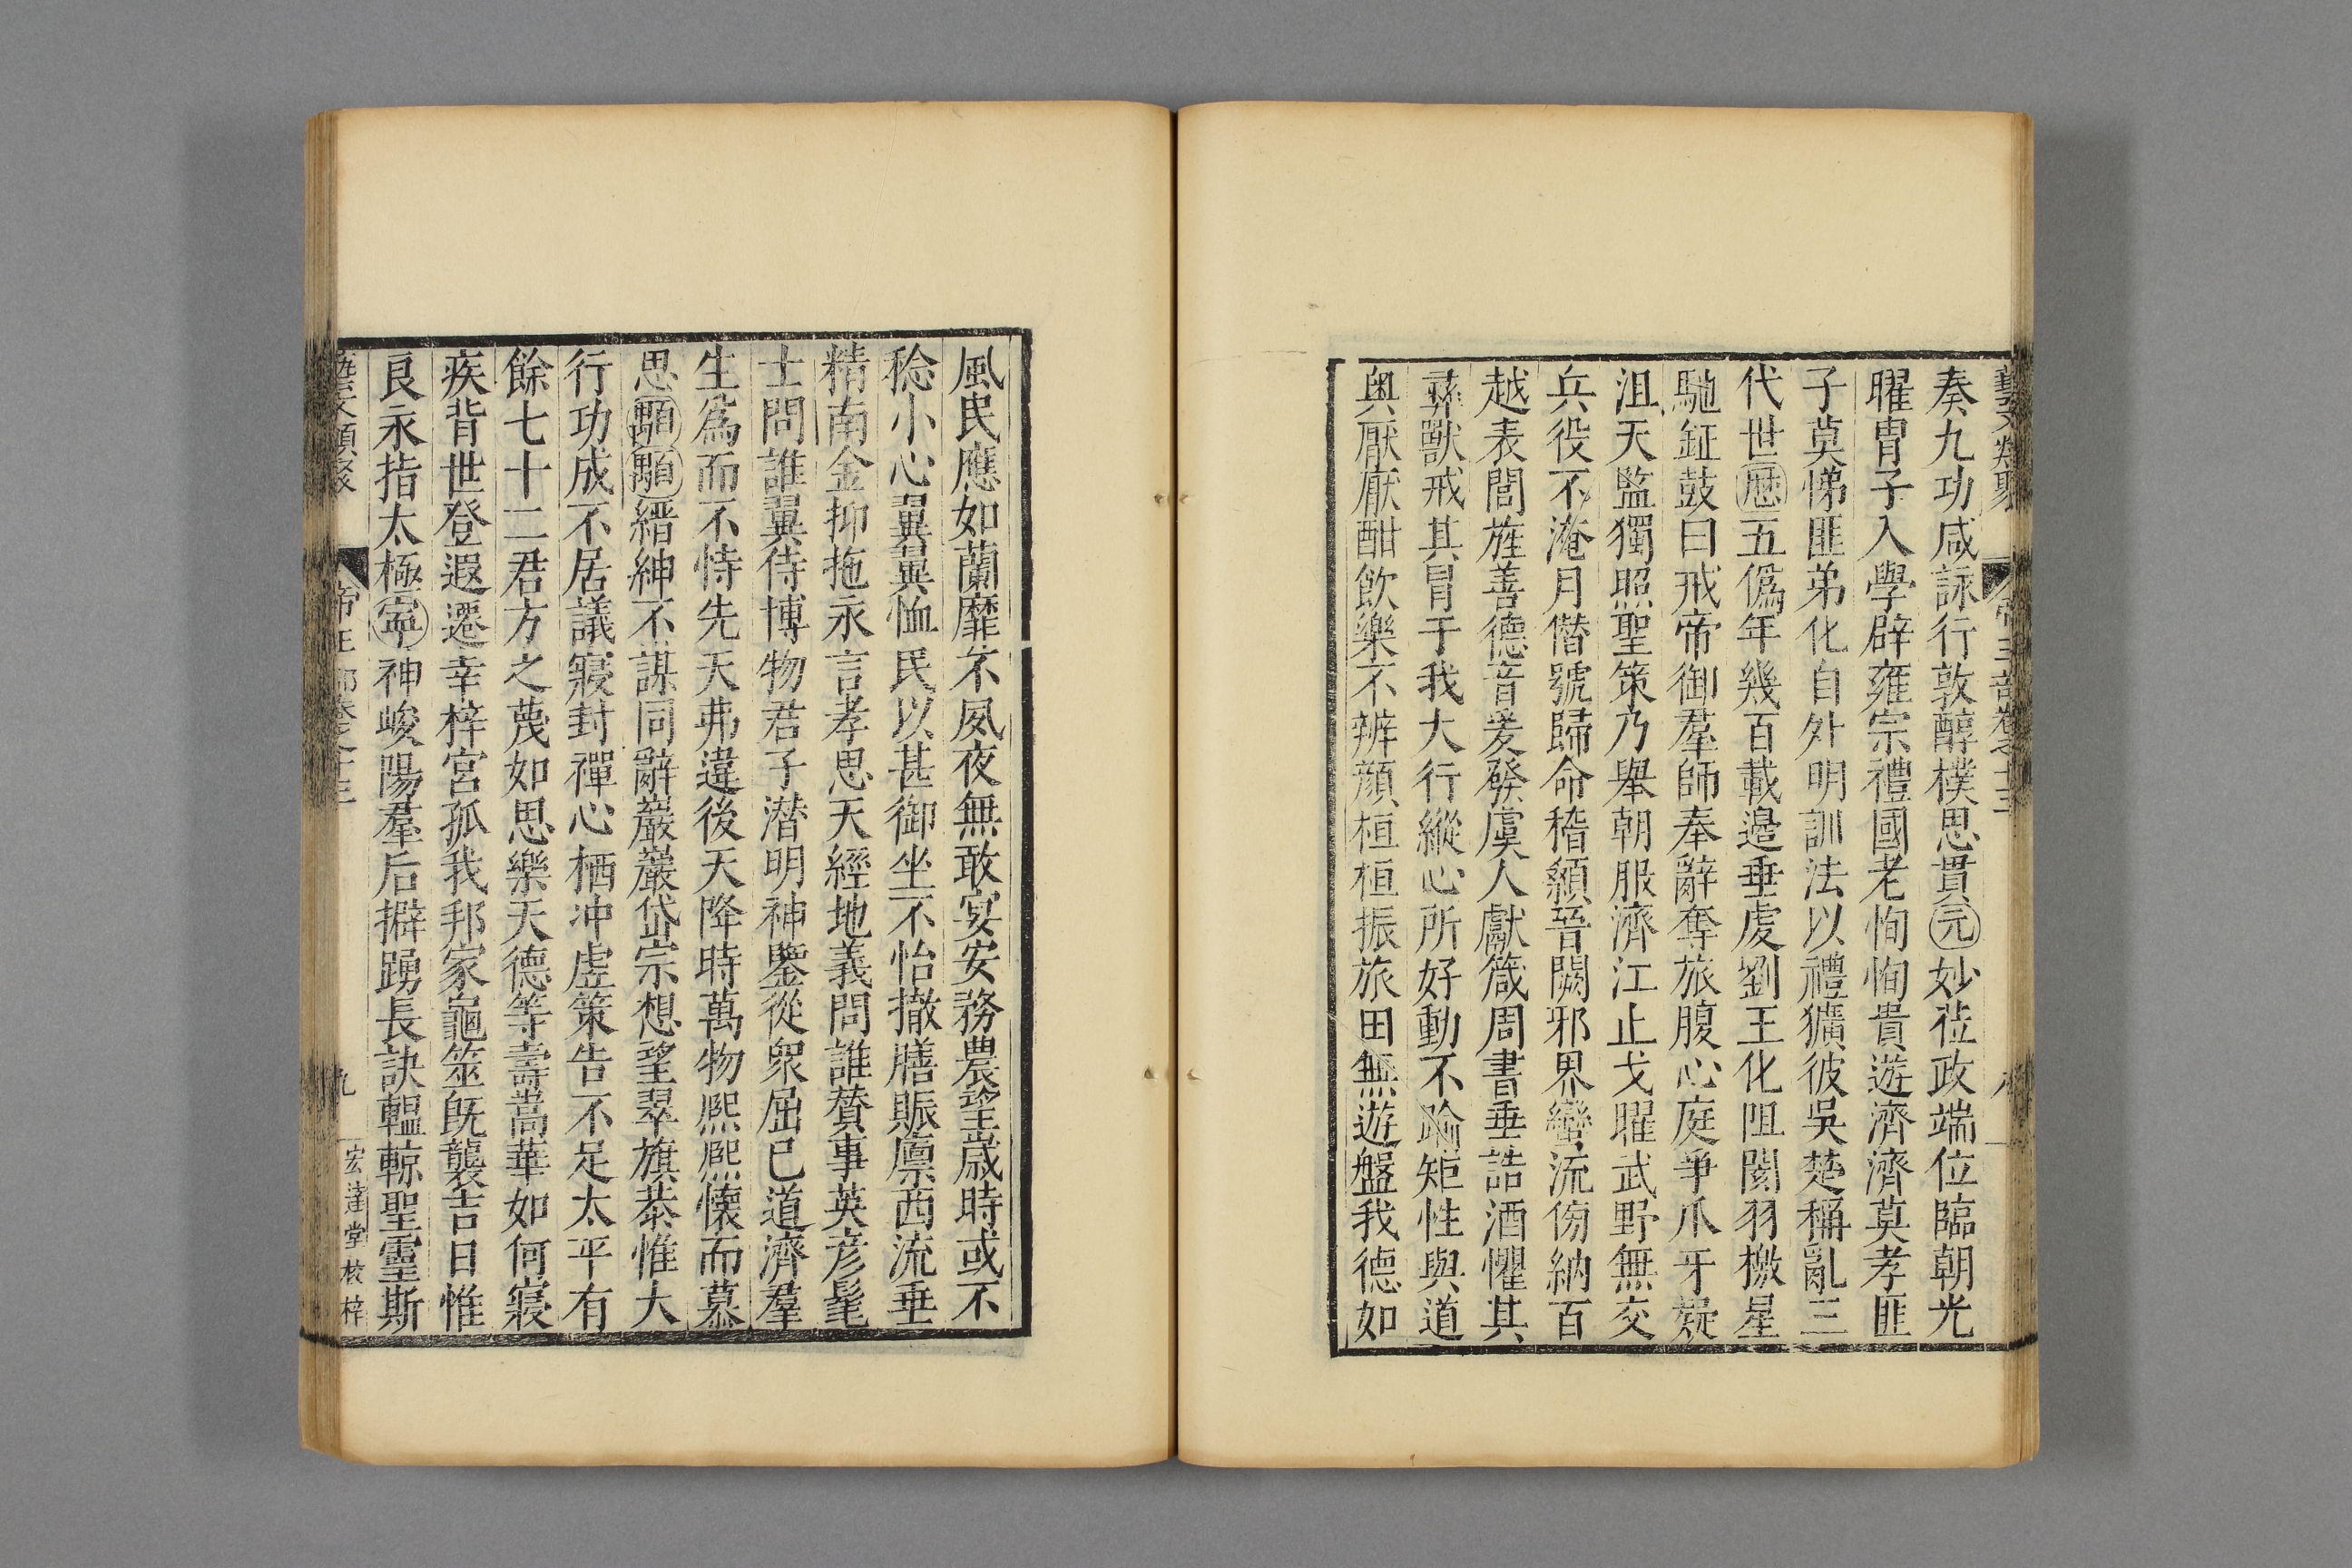 藝文類聚 帝王部卷之十三 八
奏九功咸詠行敦醇樸思貫元妙莅政端位臨朝光
曜冑子入學辟雍宗禮國老恂恂貴遊濟濟莫孝匪
子莫悌匪弟化自外明訓法以禮獷彼吳楚稱亂三
代世歷五僞年幾百載邉垂虔劉王化阻閡羽檄星
馳鉦鼓日戒帝御羣師奉辭奪旅腹心庭爭爪牙疑
沮天監獨照聖策乃舉朝服濟江止戈曜武野無交
兵役不淹月僭號歸命稽顙吾闕邪界蠻流傍納百
越表閭旌善德音爰發虞人獻箴周書垂誥酒懼其
彞獸戒其冒于我大行縱心所好動不踰矩性與道
與厭厭酣飲樂不辨顔桓桓振旅田無遊盤我德如
風民應如蘭靡不夙夜無敢宴安務農望歲時或不
稔小心翼翼恤民以甚御坐不怡撤膳賑廪西流垂
精南金抑拖永言孝思天經地義問誰贊事英彦髦
士問誰翼侍博物君子潜明神鑒從衆屈已道濟羣
生爲而不恃先天弗違後天降時萬物熙熙懷而慕
思顒顒縉紳不謀同辭巖巖岱宗想望翠旗恭惟大
行功成不居議寢封禪心栖冲虛策告不足太平有
餘七十二君方之蔑如思樂天德等壽嵩華如何寢
疾背世登遐遷幸梓宮孤我邦家龜筮旣襲吉日惟
良永指太極寧神峻陽羣后擗踴長訣轀輬聖靈斯
藝文類聚 帝王部卷之十三 九 宏達堂校梓